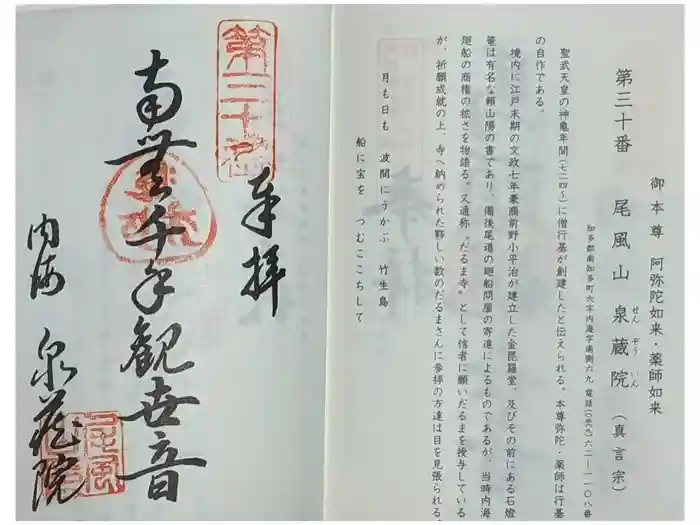 第三十番
尾風山 泉蔵院(真言宗)
せん ぞう いん
御本尊 阿弥陀如来・薬師如来
知多郡南知多町大字内海字南側六九 電話(〇五六九)六二―二一〇八番
聖武天皇の神亀年間(七二四〜)に僧行基が創建したと伝えられる。本尊弥陀・薬師は行基
の自作である。
境内に江戸末期の文政七年豪商前野小平治が建立した金毘羅堂、及びその前にある石燈
篭は有名な頼山陽の書であり、備後尾道の廻船問屋の寄進によるものであるが、当時内海
廻船の商権の拡さを物語る。又通称〝だるま寺〟として信者に願いだるまを授与している
が、祈願成就の上、寺へ納められた夥しい数のだるまさんに参拝の方達は目を見張られる。
月も日も 波間にうかぶ 竹生島
船に宝を つむここちして
第三十番
奉拝
南無千手観世音
内海 泉蔵院